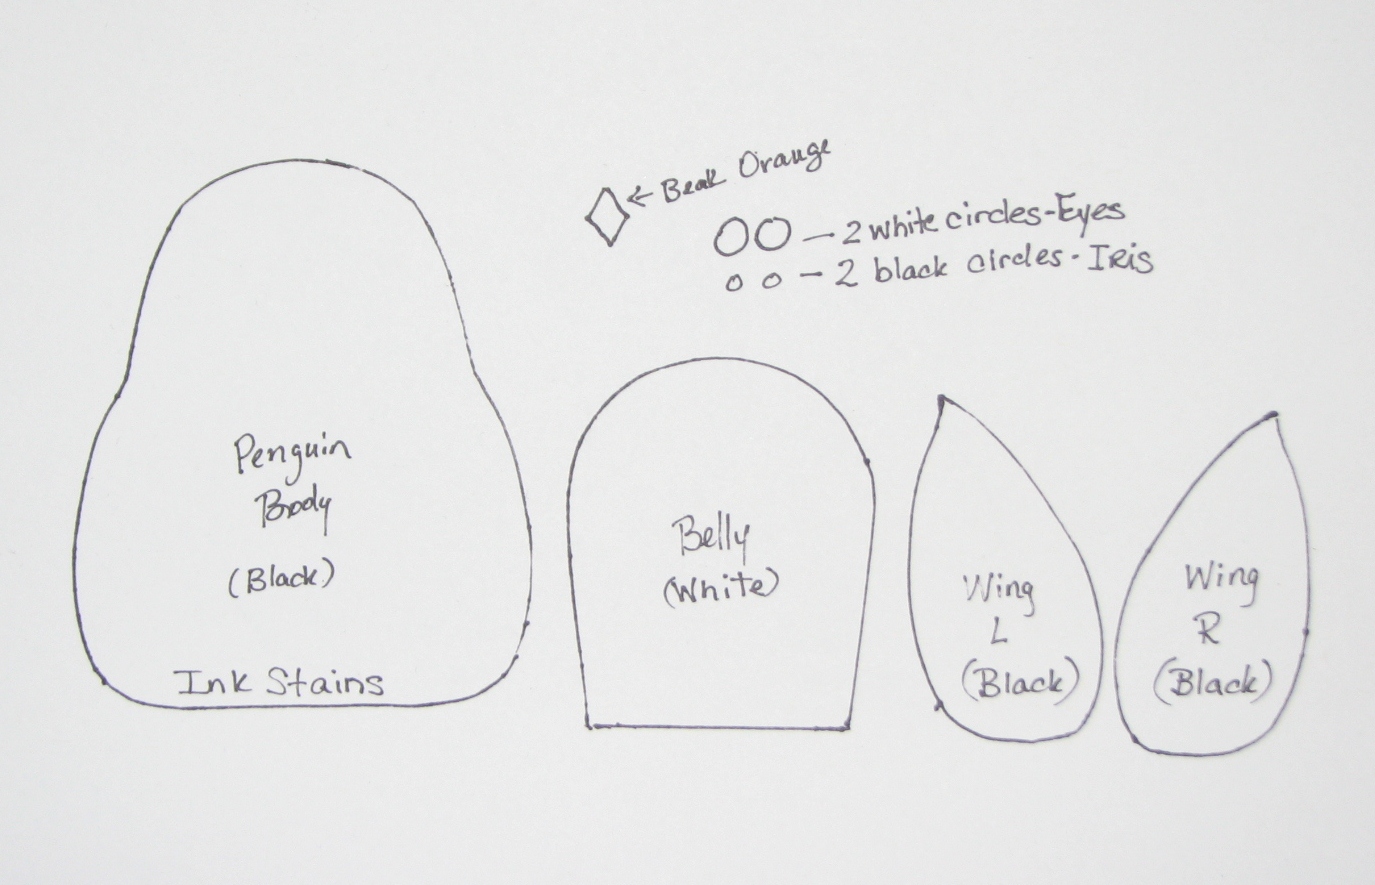 ← Beak Orange
— 2 white circles-Eyes
— 2 black circles-Iris
Penguin
Body
(Black)
Ink Stains
Belly
(White)
Wing
L
(Black)
Wing
R
(Black)